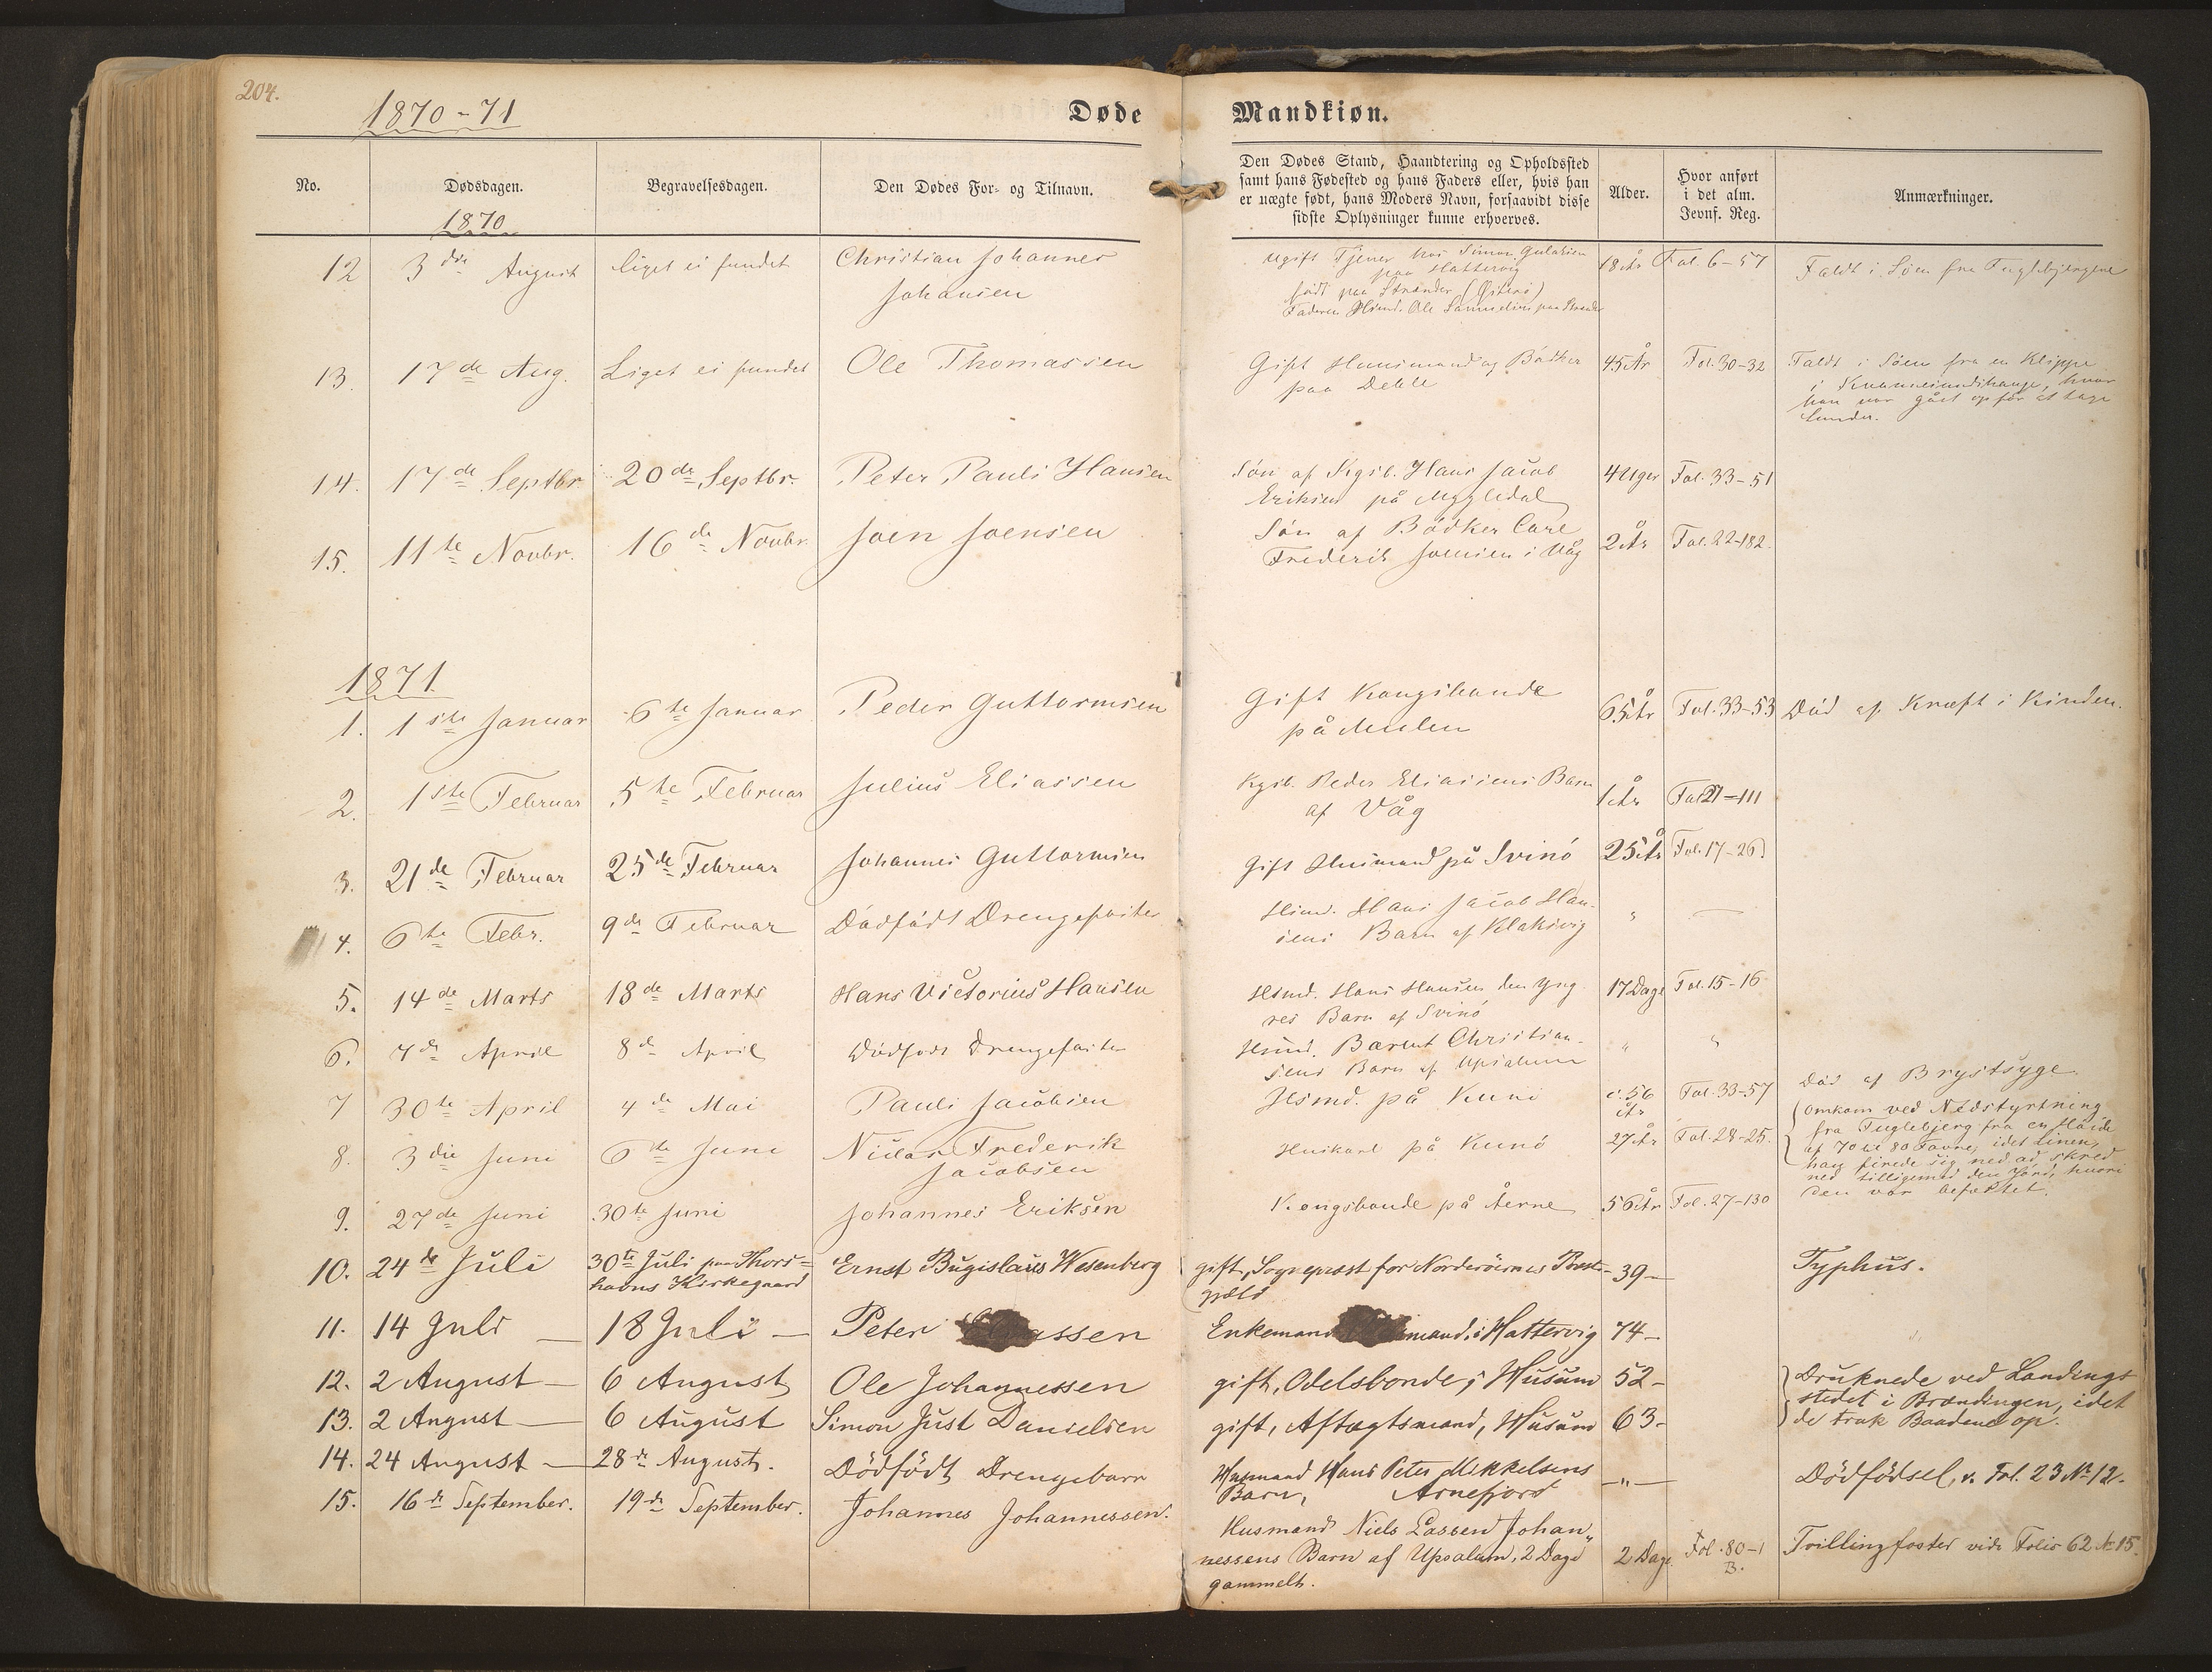 204.
1870-71
Døde
Mandkiøn.
No.
Dødsdagen.
Begravelsesdagen.
Den Dødes For- og Tilnavn.
Den Dødes Stand, Haandtering og Opholdssted
samt hans Fødested og hans Faders eller, hvis han
er uægte født, hans Moders Navn, forsaavidt disse
sidste Oplysninger kunne erhverves.
Alder.
Hvor anført
i det alm.
Jevnf. Reg.
Anmærkninger.
1870
12 3die August liget ei fundet Christian Johannes
Johansen
Ugift Tjener hos Simon
paa Hattervig
født paa Strænder (Østerö)
Faderen Hsmd. Ole Samuelsen paa
18 År Fol. 6-57 Faldt i Söen fra Fuglebjergene
13. 17de Aug. Liget ei fundet Ole Thomassen
Gift Huusmand og Bödker
paa Deble
45 År Fol. 30-32 Faldt i Söen fra en Klippe
i hvor
han var gået op for at tage
Lunder.
14. 17de Septbr 20de Septbr. Peter Pauli Hansen
Sön af Kgsb. Hans Jacob
Eriksen på Mygledal
4 Uger Fol. 33-51
15. 11te Novbr. 16de Novbr. Joen Joensen
Sön af Bödker Carl
Frederik Joensen i Våg
2 År Fol. 22-182.
1871
1. 1ste Januar 6te Januar Peder Guttormsen
Gift Kongsbonde
på Mulen
65 År Fol. 33-53 Död af Kræft i Kinden.
2. 1ste Februar 5te Februar Julius Eliassen
Kgsb. Peder Eliasens Barn
af Våg
1 År Fol 21-111
3. 21de Februar 25de Februar Johannes Guttormsen
Gift Huusmand på Svinö 25 År Fol. 17-26
4. 6te Febr. 9de Februar Dödfödt Drengefoster
Hsmd. Hans Jacob Han-
sens Barn af Klaksvig
" —
5. 14de Marts 18de Marts Hans Victorius Hansen
Hsmd. Hans Hansen den Yng
res Barn af Svinö
17 Dage Fol. 15-16
6. 7de April 8de April Dödfödt Drengefoster
Hsmd. Barent Christian-
sens Barn af Upsalum
" "
7 30te April 4de Mai Pauli Jacobsen
Hsmd. på Kunö
c. 56
År
Fol. 33-57 Död af Brystsyge.
8. 3die Juni 6te Juni Niclas Frederik
Jacobsen
Huskarl på Kunö 27 År Fol. 28-25.
Omkom ved Nedstyrtning
fra Fuglebjerg fra en Höide
af 70 til 80 Favne, idet Linen,
han firede sig ned ad skred
ned tilligemed den Jord, hvori
den var befæstet.
9. 27de Juni 30te Juni Johannes Eriksen
Kongsbonde på Årne 56 År Fol. 27-130
10. 24de Juli 30te Juli paa Thors=
havns Kirkegaard
Ernst Bugislaus Wesenberg
gift, Sognepræst for Norderöernes Præste-
gjæld
39 — Typhus.
11. 14 Juli — 18 Juli — Peter assen
Enkemand mand, i Hattervig 74 —
12. 2 August — 6 August Ole Johannessen
gift, Odelsbonde, i Husum 52 —
13. 2 August — 6 August Simon Just Danielsen
gift, Aftægtsmand, Husum 63 -
Druknede ved Landings
stedet i Brændingen, idet
de trak Baadene op.
14. 24 August — 28de August. Dödfödt Drengebarn
Husmand Hans Peter Mikkelsens
Barn, Arnefjord
— " — Dödfödsel, v. Fol. 23 No 12.
15. 16de September. 19de September. Johannes Johannessen.
Husmand Niels Lassen Johan"
nessens Barn af Upsalum, 2 Dage
gammelt.
2 Dage Fol. 80-1
B.
Tvillingfoster vide Folio 62 No 15.